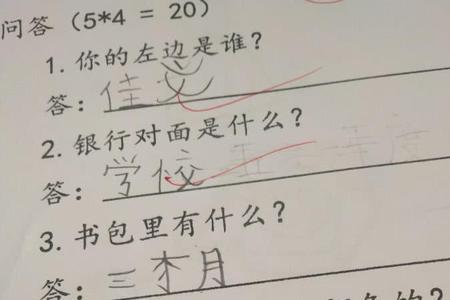 问答 (5*4 = 20)
1. 你的左边是谁?
答: 佳
2. 银行对面是什么?
答: 学
3. 书包里有什么?
答: 三 月